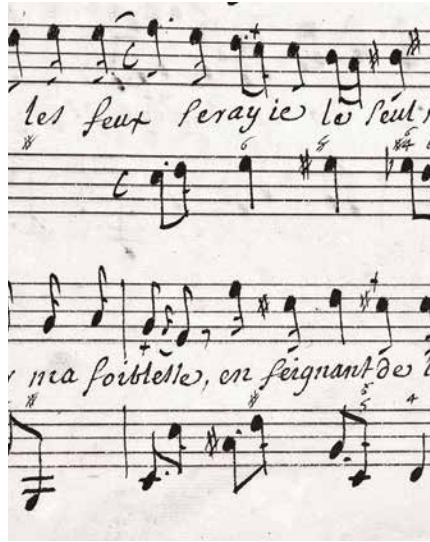 les feux seray ie le seul
ma foiblesse, en feignant de